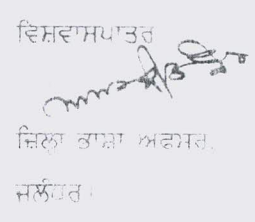 ਵਿਸ਼ਵਾਸਪਾਤਰ
ਜ਼ਿਲ੍ਹਾ ਭਾਸ਼ਾ ਅਫਸਰ,
ਜਲੰਧਰ।